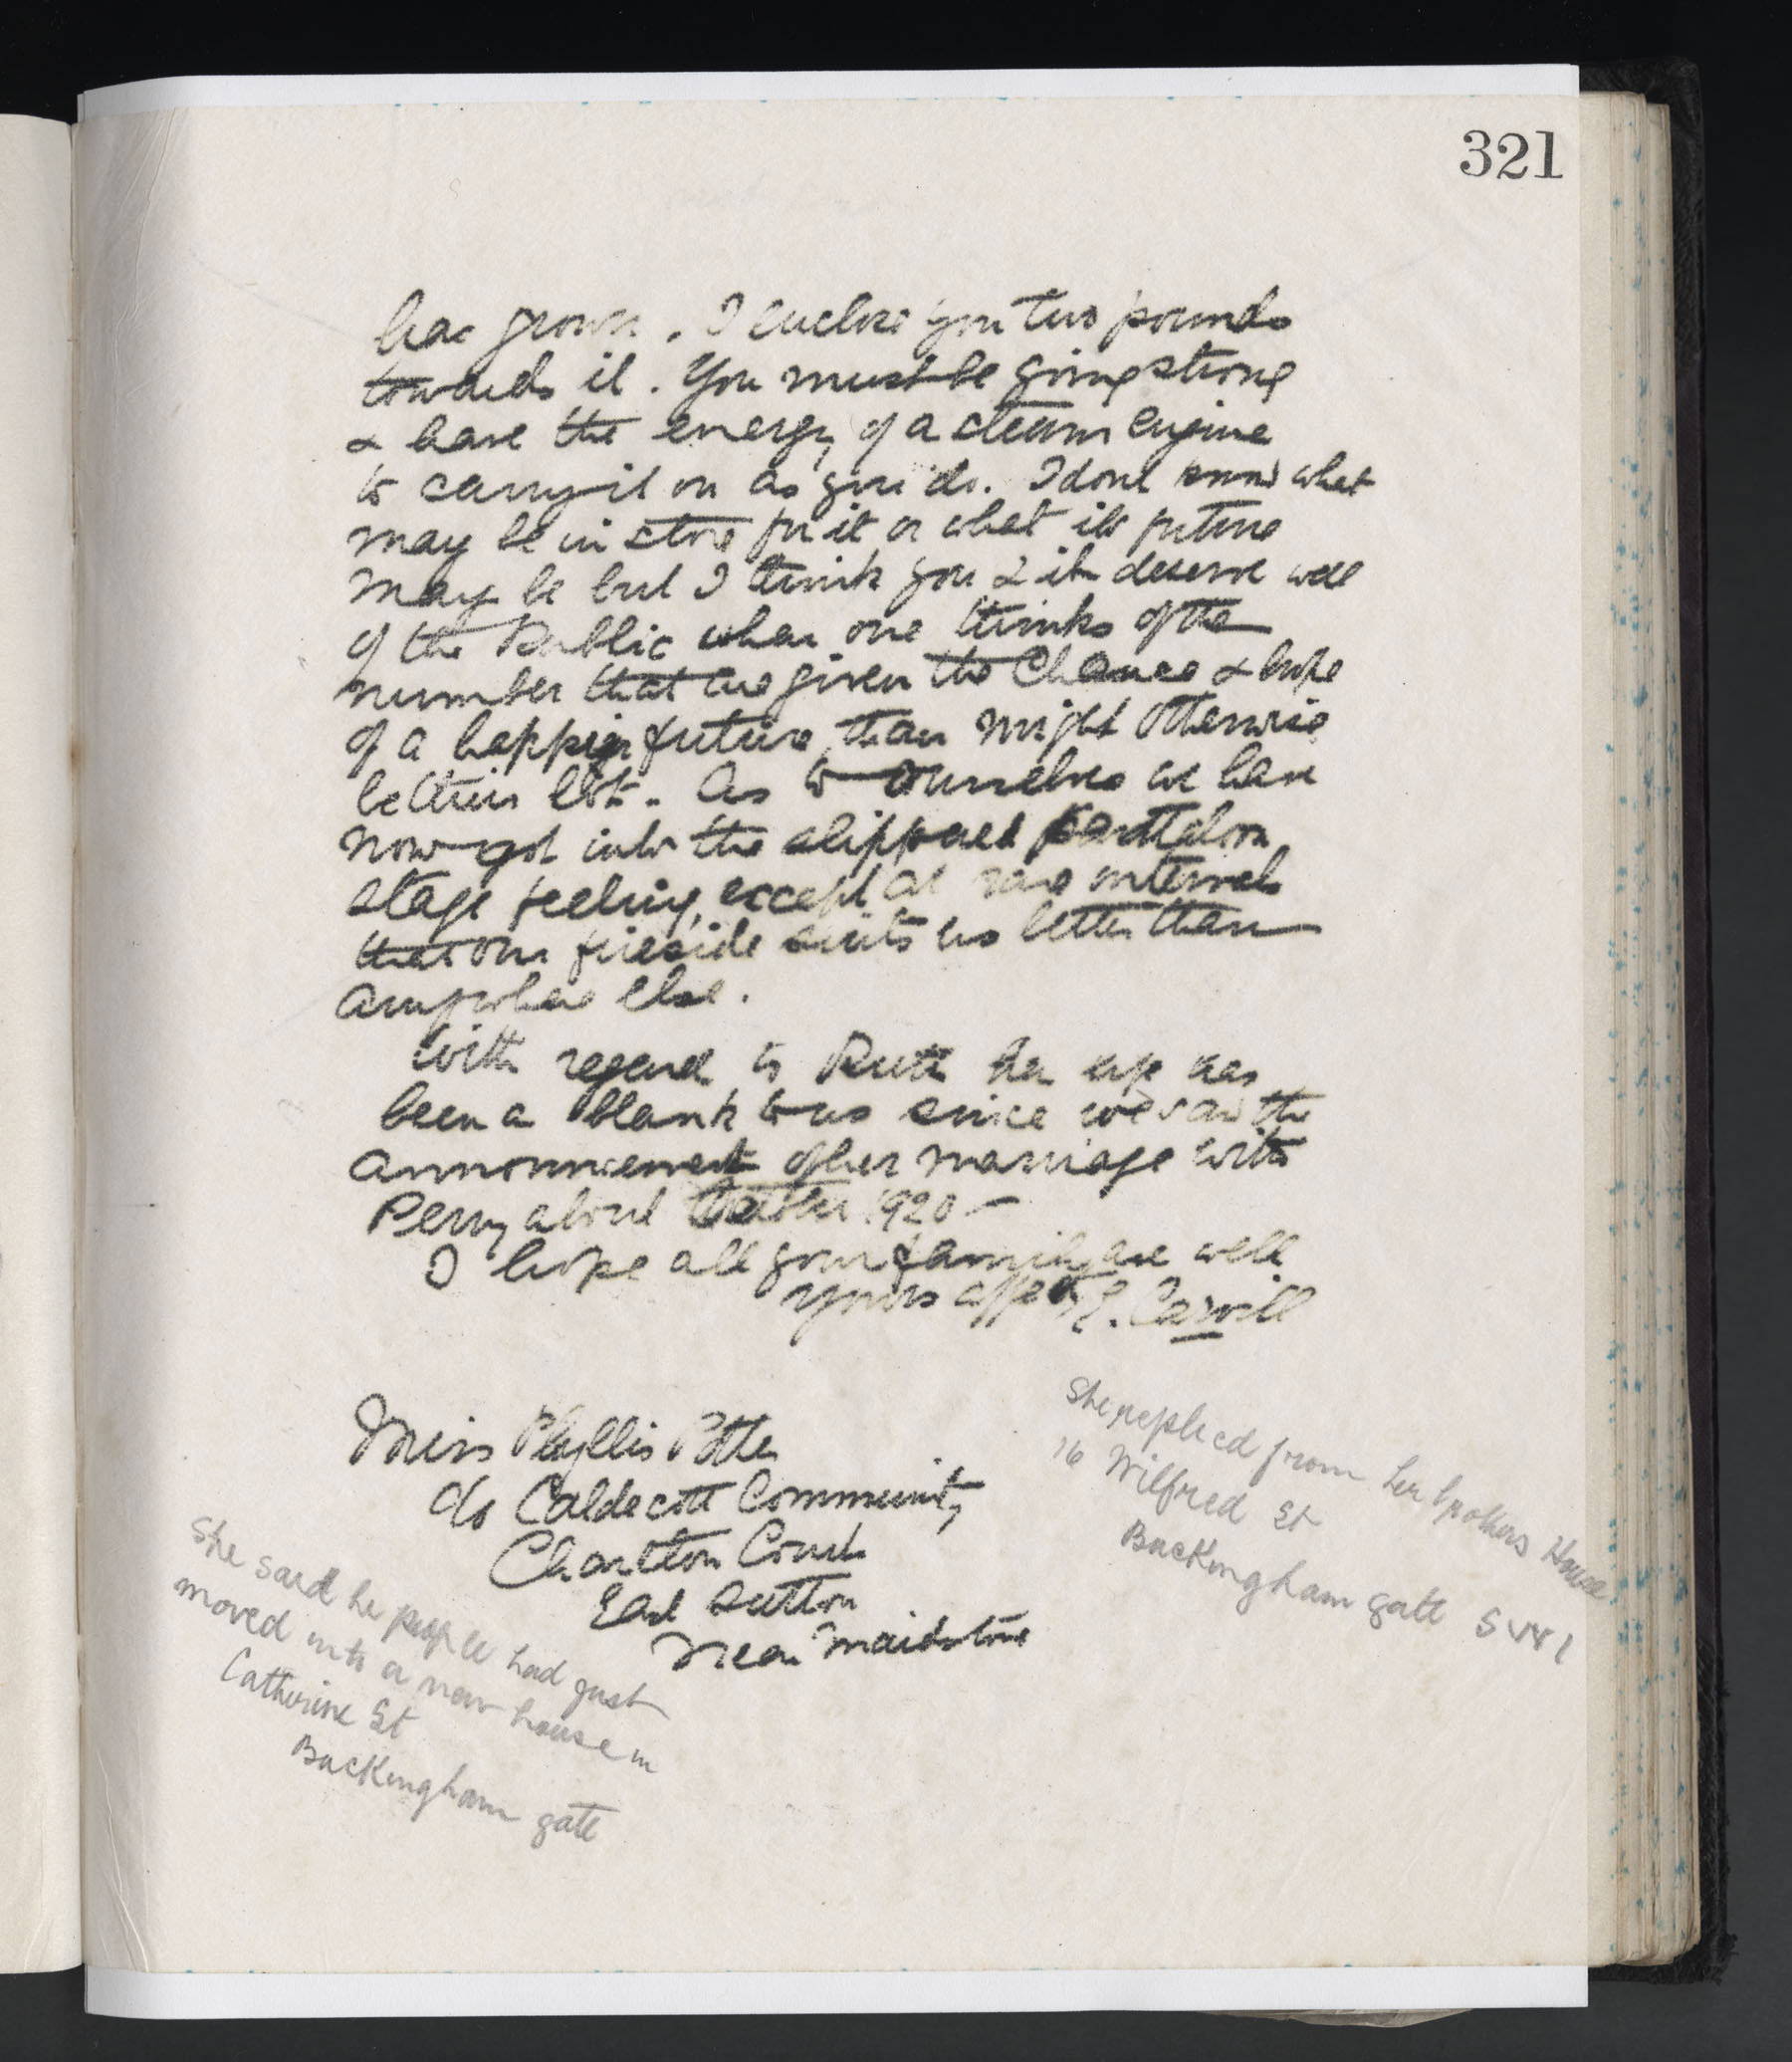 321
has grown. I enclose you two pounds
towards it. You must be going strong
& have the energy of a steam engine
to carry it on as you do. I dont know what
may be in store for it or what its future
may be but I think you & it deserve well
of the Public when one thinks of the
number that are given the Chance & hope
of a happier future than might otherwise
be their lot. As to ourselves we have
now got into the slippered pantaloon
stage feeling, except at rare intervals
that our fireside suits us better than
anywhere else.
With regard to Ruth her life has
been a blank to us since we saw the
announcement of her marriage with
Perry about October 1920 -
I hope all your family are well
Yours affectly E. Carvill
Miss Phyllis Potter
c/o Caldecott Community
Charlton Court
East Sutton
Near Maidstone
She replied from her brothers House
16 Wilfred St
Buckingham gate SW1
She said he people had just
moved into a new house in
Catherine St
Buckingham gate